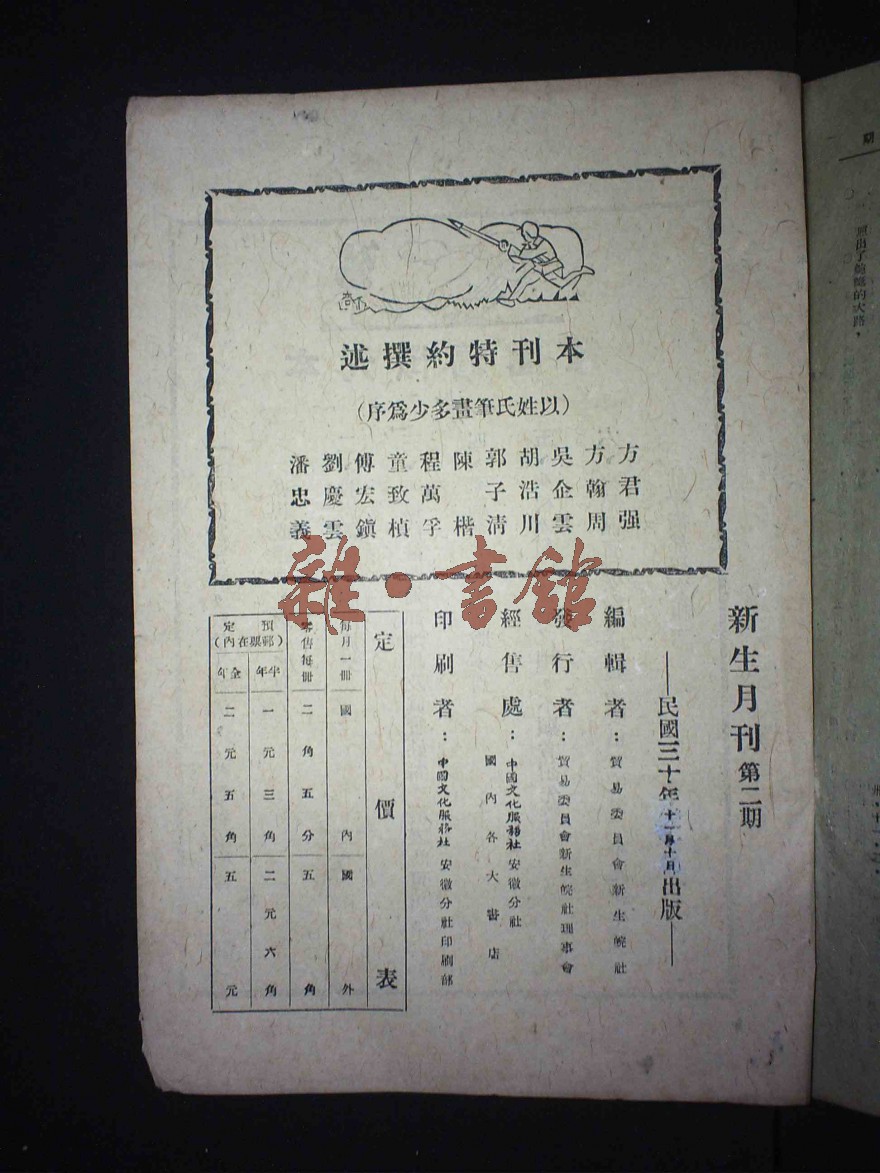 本刊特約撰述
(以姓氏筆畫多少爲序)
方君强
方翰周
吳企雲
胡浩川
郭子清
陳楷
程萬孚
童致楨
傅宏鎭
劉慶雲
潘忠義
新生月刊第二期
——民國三十年十一月十日出版——
編輯者：貿易委員會新生皖社
發行者：貿易委員會新生皖社理事會
經售處：中國文化服務社安徽分社
國內各大書店
印刷者：中國文化服務社安徽分社印刷部
定價表
每月一冊 國內 國外
零售每冊 二角五分 五角
預定(郵票在內)
半年 一元三角 二元六角
全年 二元五角 五元
雜·書館
期
的大路，